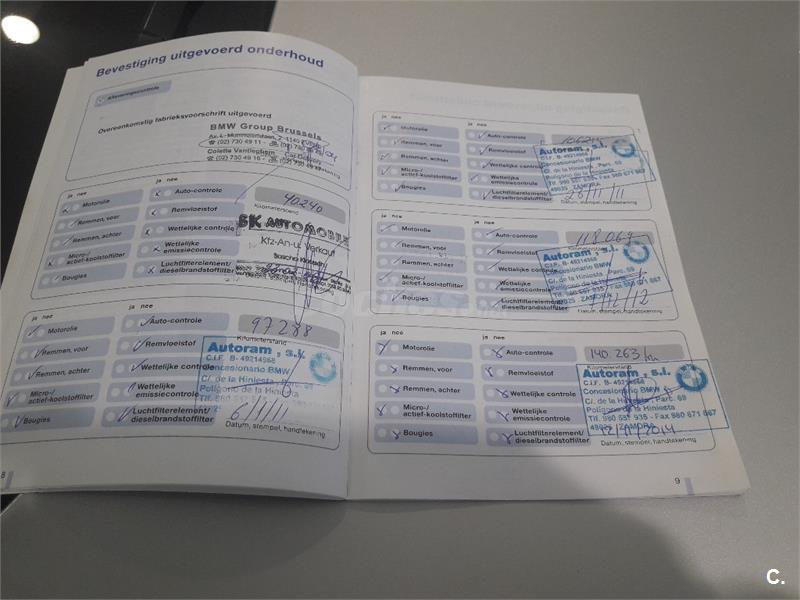 Bevestiging uitgevoerd onderhoud
Afleveringscontrole
Overeenkomstig fabrieksvoorschrift uitgevoerd
BMW Group Brussels
(02) 730 49 11
Colette Vantieghem Car Delivery
(02) 730 49 16
ja nee
ja nee
Motorolie
Auto-controle
40240
Remmen, voor
Remvloeistof
Kilometerstand
Remmen, achter
Wettelijke controle
SK AUTOMOBILE
Micro-/
actief-koolstoffilter
Wettelijke
emissiecontrole
Kfz-An-u. Verkauf
Bougies
Luchtfilterelement/
dieselbrandstoffilter
ja nee
ja nee
Motorolie
Auto-controle
97238
Remmen, voor
Remvloeistof
Kilometerstand
Remmen, achter
Wettelijke controle
Micro-/
actief-koolstoffilter
Wettelijke
emissiecontrole
Bougies
Luchtfilterelement/
dieselbrandstoffilter
Autoram, s.l.
C.I.F. B- 49214968
Concesionario BMW
C/. de la Hiniesta
Polígono de la Hiniesta
49025 ZAMORA
6/1/11
Datum, stempel, handtekening
8
ja nee
ja nee
Motorolie
Auto-controle
Remmen, voor
Remvloeistof
Remmen, achter
Wettelijke controle
Micro-/
actief-koolstoffilter
Wettelijke
emissiecontrole
Bougies
Luchtfilterelement/
dieselbrandstoffilter
Autoram, s.l.
C.I.F. B- 49214968
Concesionario BMW
C/. de la Hiniesta, Parc. 69
Polígono de la Hiniesta
49025 ZAMORA
Datum, stempel, handtekening
ja nee
ja nee
Motorolie
Auto-controle
118.067
Remmen, voor
Remvloeistof
Remmen, achter
Wettelijke controle
Micro-/
actief-koolstoffilter
Wettelijke
emissiecontrole
Bougies
Luchtfilterelement/
dieselbrandstoffilter
Autoram, s.l.
C.I.F. B- 49214968
Concesionario BMW
C/. de la Hiniesta, Parc. 69
Polígono de la Hiniesta
49025 ZAMORA
Datum, stempel, handtekening
ja nee
ja nee
Motorolie
Auto-controle
140.263/km
Remmen, voor
Remvloeistof
Kilometerstand
Remmen, achter
Wettelijke controle
Micro-/
actief-koolstoffilter
Wettelijke
emissiecontrole
Bougies
Luchtfilterelement/
dieselbrandstoffilter
Autoram, s.l.
C.I.F. B- 49214968
Concesionario BMW
C/. de la Hiniesta, Parc. 69
Polígono de la Hiniesta
Tlf. 980 551 935 - Fax 980 671 867
49025 ZAMORA
12/11/2014
Datum, stempel, handtekening
9
C.